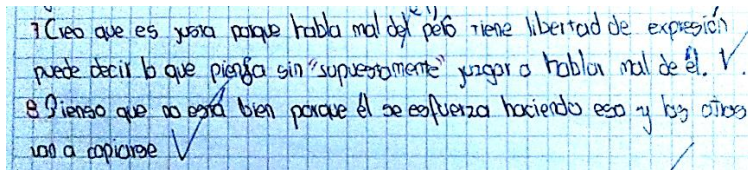 7 Creo que es justa porque habla mal del pero tiene libertad de expresión
puede decir lo que piensa sin "supuestamente" juzgar o hablar mal de él.
8 Pienso que no está bien porque él se esfuerza haciendo eso y los otros
van a copiarse